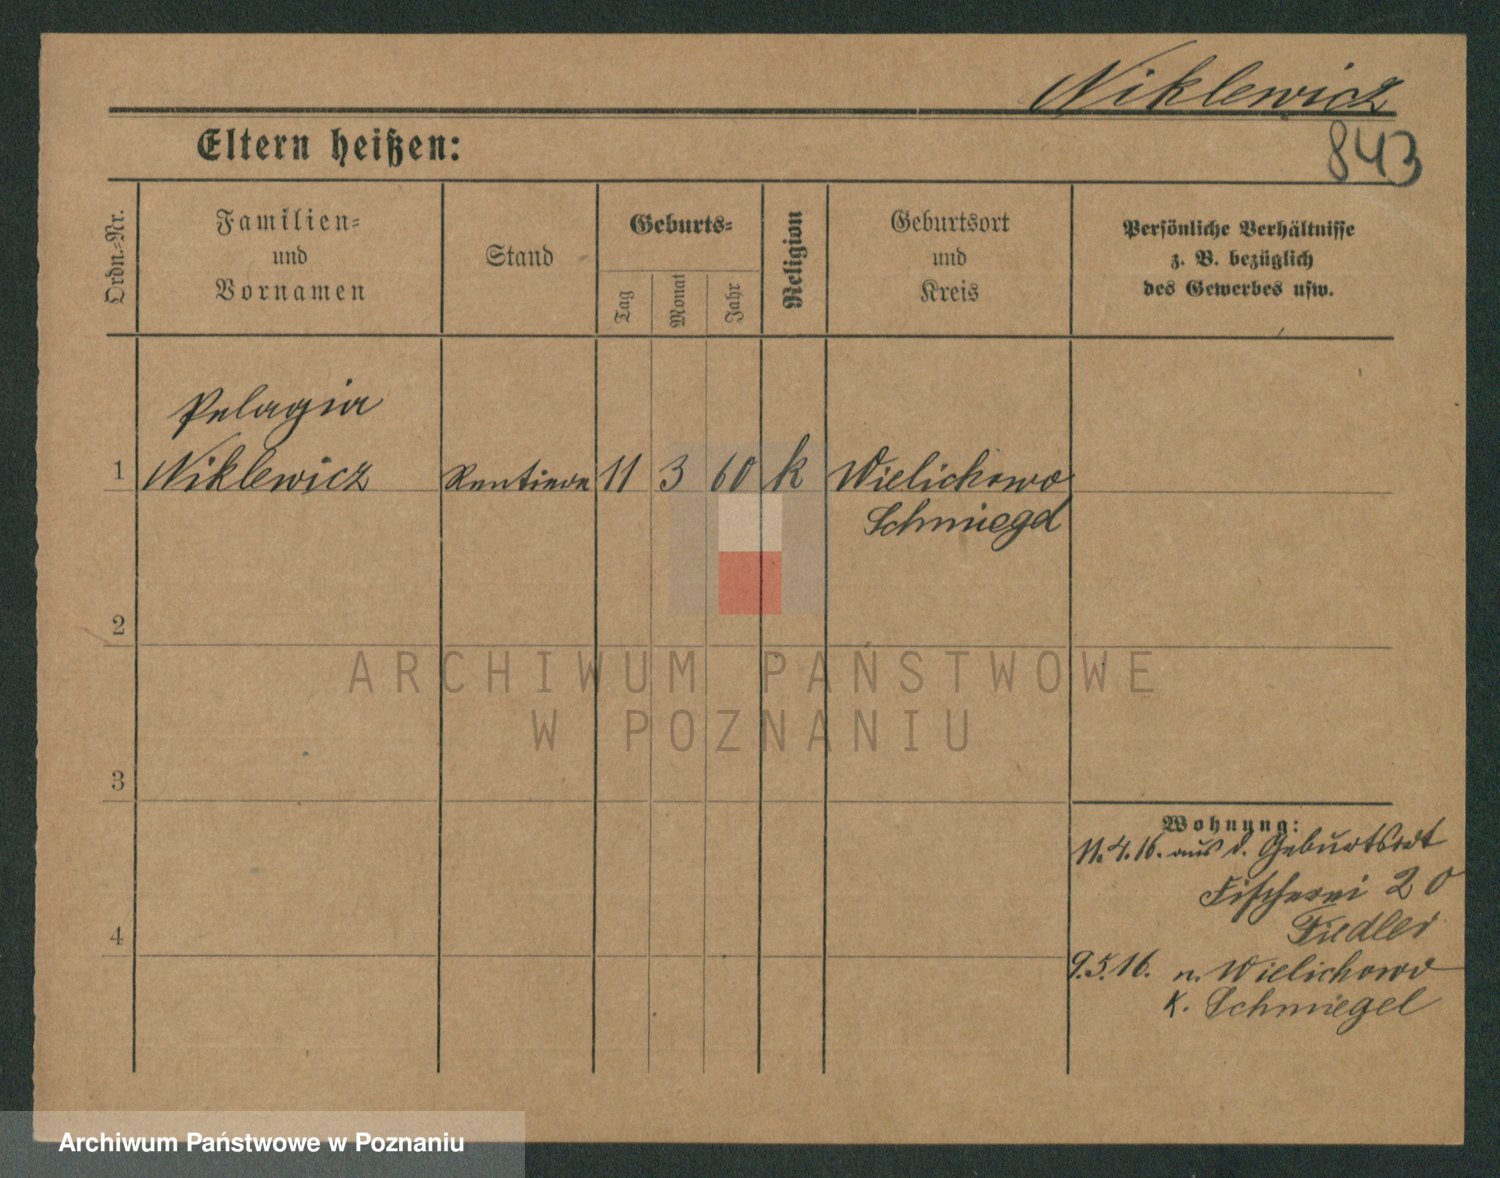 Niklewicz
843
Eltern heißen:
Ordn.-Nr.
Familien-
und
Vornamen
Stand
Geburts-
Tag
Monat
Jahr
Religion
Geburtsort
und
Kreis
Persönliche Verhältnisse
z. B. bezüglich
des Gewerbes usw.
Pelagia
1 Niklewicz Rentiere 11 3 60 k Wielichowo
Schmiegel
2
ARCHIWUM PAŃSTWOWE
W POZNANIU
3
Wohnung:
11.4.16. aus d. Geburtsort
Fischerei 20
Fiedler
4
9.5.16. n. Wielichowo
K. Schmiegel
Archiwum Państwowe w Poznaniu